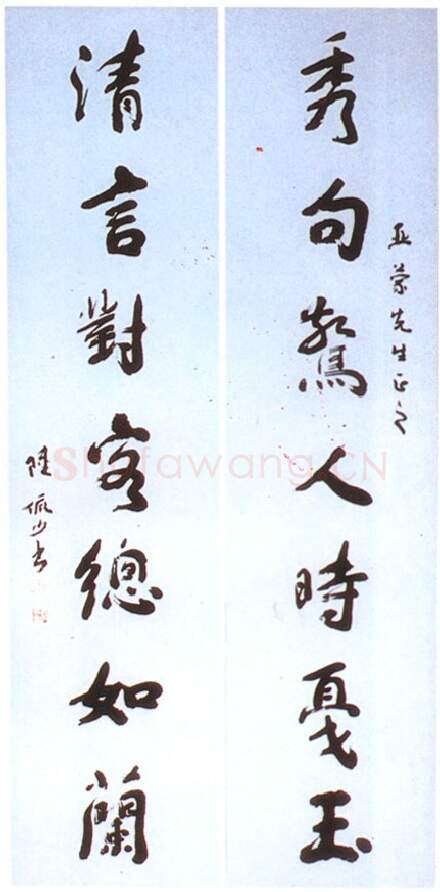 亚蒙先生正之
秀句驚人時戛玉
清言對客總如蘭
陸佩少書
Shufawang.CN